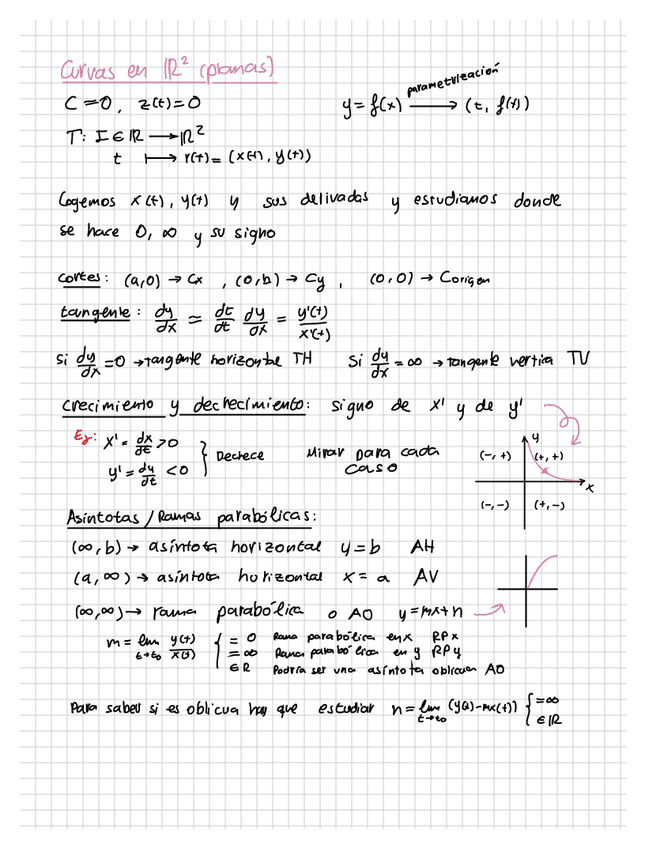 Curvas en ℝ² (planas)
C=0, z(t)=0
y=f(x) parametrización → (t, f(t))
T: I∈ℝ → ℝ²
t ↦ r(t)=(x(t), y(t))
Cogemos x(t), y(t) y sus derivadas y estudiamos donde
se hace 0, ∞ y su signo
Cortes: (a,0) → Cx , (0,b) → Cy , (0,0) → Corigen
tangente: dy/dx = dt/dt dy/dx = y'(t)/x'(t)
Si dy/dx = 0 → tangente horizontal TH Si dy/dx = ∞ → tangente vertica TV
Crecimiento y decrecimiento: signo de x' y de y'
Ej: x' = dx/dt > 0
y' = dy/dt < 0 } Decrece
Mirar para cada
caso
y
(-,+) (+,+)
x
(-,-) (+,-)
Asíntotas/Ramas parabólicas:
(∞,b) → asíntota horizontal y=b AH
(a,∞) → asíntota horizontal x=a AV
(∞,∞) → rama parabólica o AO y=mx+n
m = lim t→t₀ y(t)/x(t) { = 0 Rama parabólica en x RPx
= ∞ Rama parabólica en y RPy
∈ℝ Podría ser una asíntota oblicua AO
Para saber si es oblicua hay que estudiar n = lim t→t₀ (y(t)-mx(t)) { =∞
∈ℝ